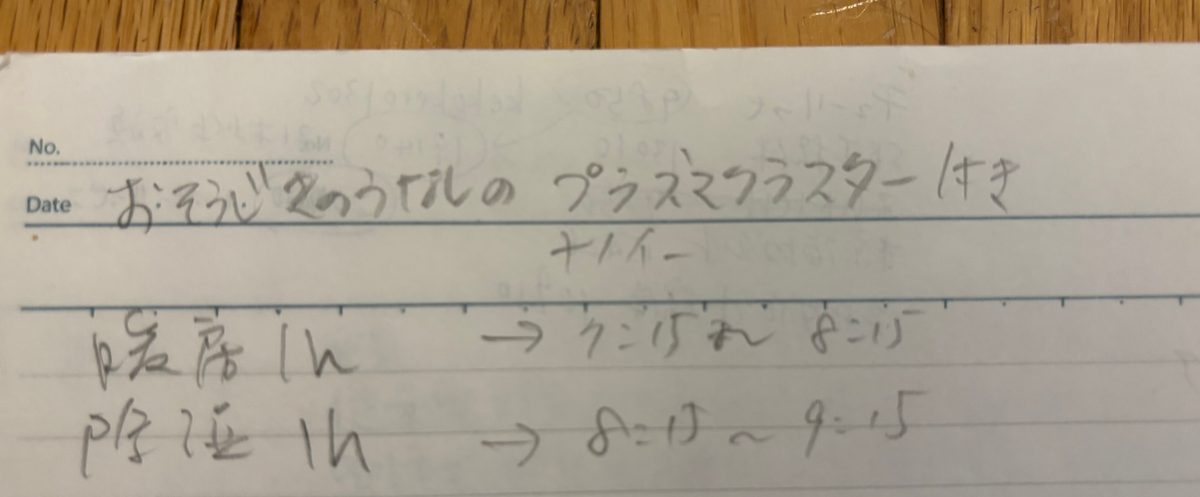 No.
Date おそうじ のプラズマクラスター
ナノイー
暖房 1h → 7:15 〜 8:15
除湿 1h → 8:15 〜 9:15